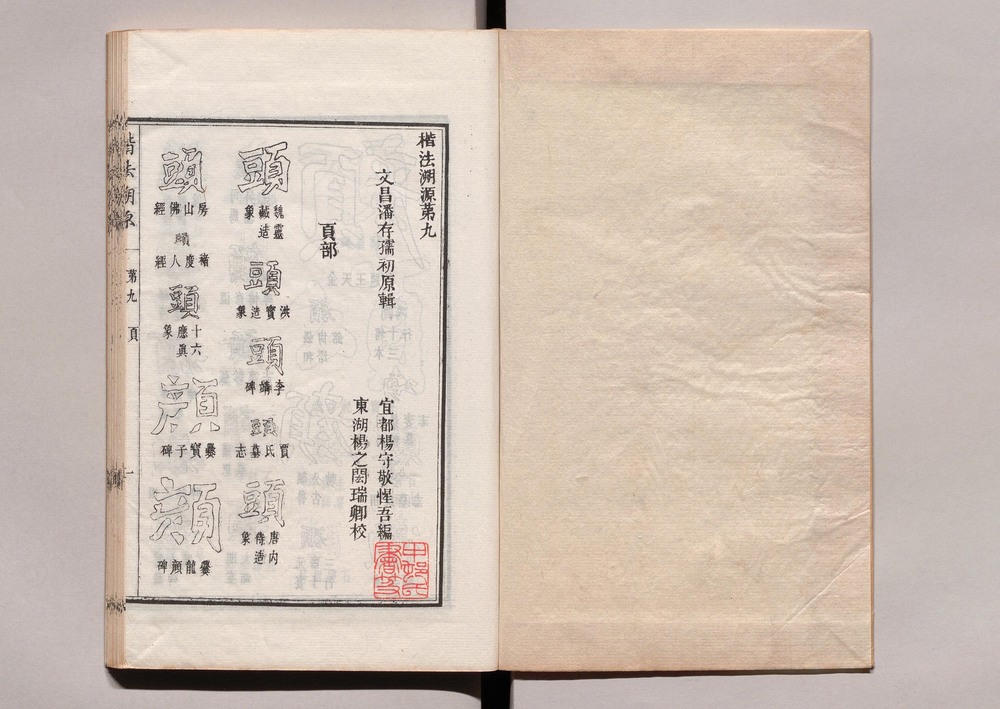 楷法溯源第九
文昌潘存孺初原輯
宜都楊守敬惺吾編
東湖楊之閎瑞卿校
頁部
頭
魏靈藏造象
頭
洪寶造象
頭
李靖碑
頭
賈氏墓志
頭
唐内侍造象
頭
房山佛經
頭
褚度人經
頭
十六應眞象
顏
爨寶子碑
顏
爨龍顏碑
楷法溯源
第九
頁